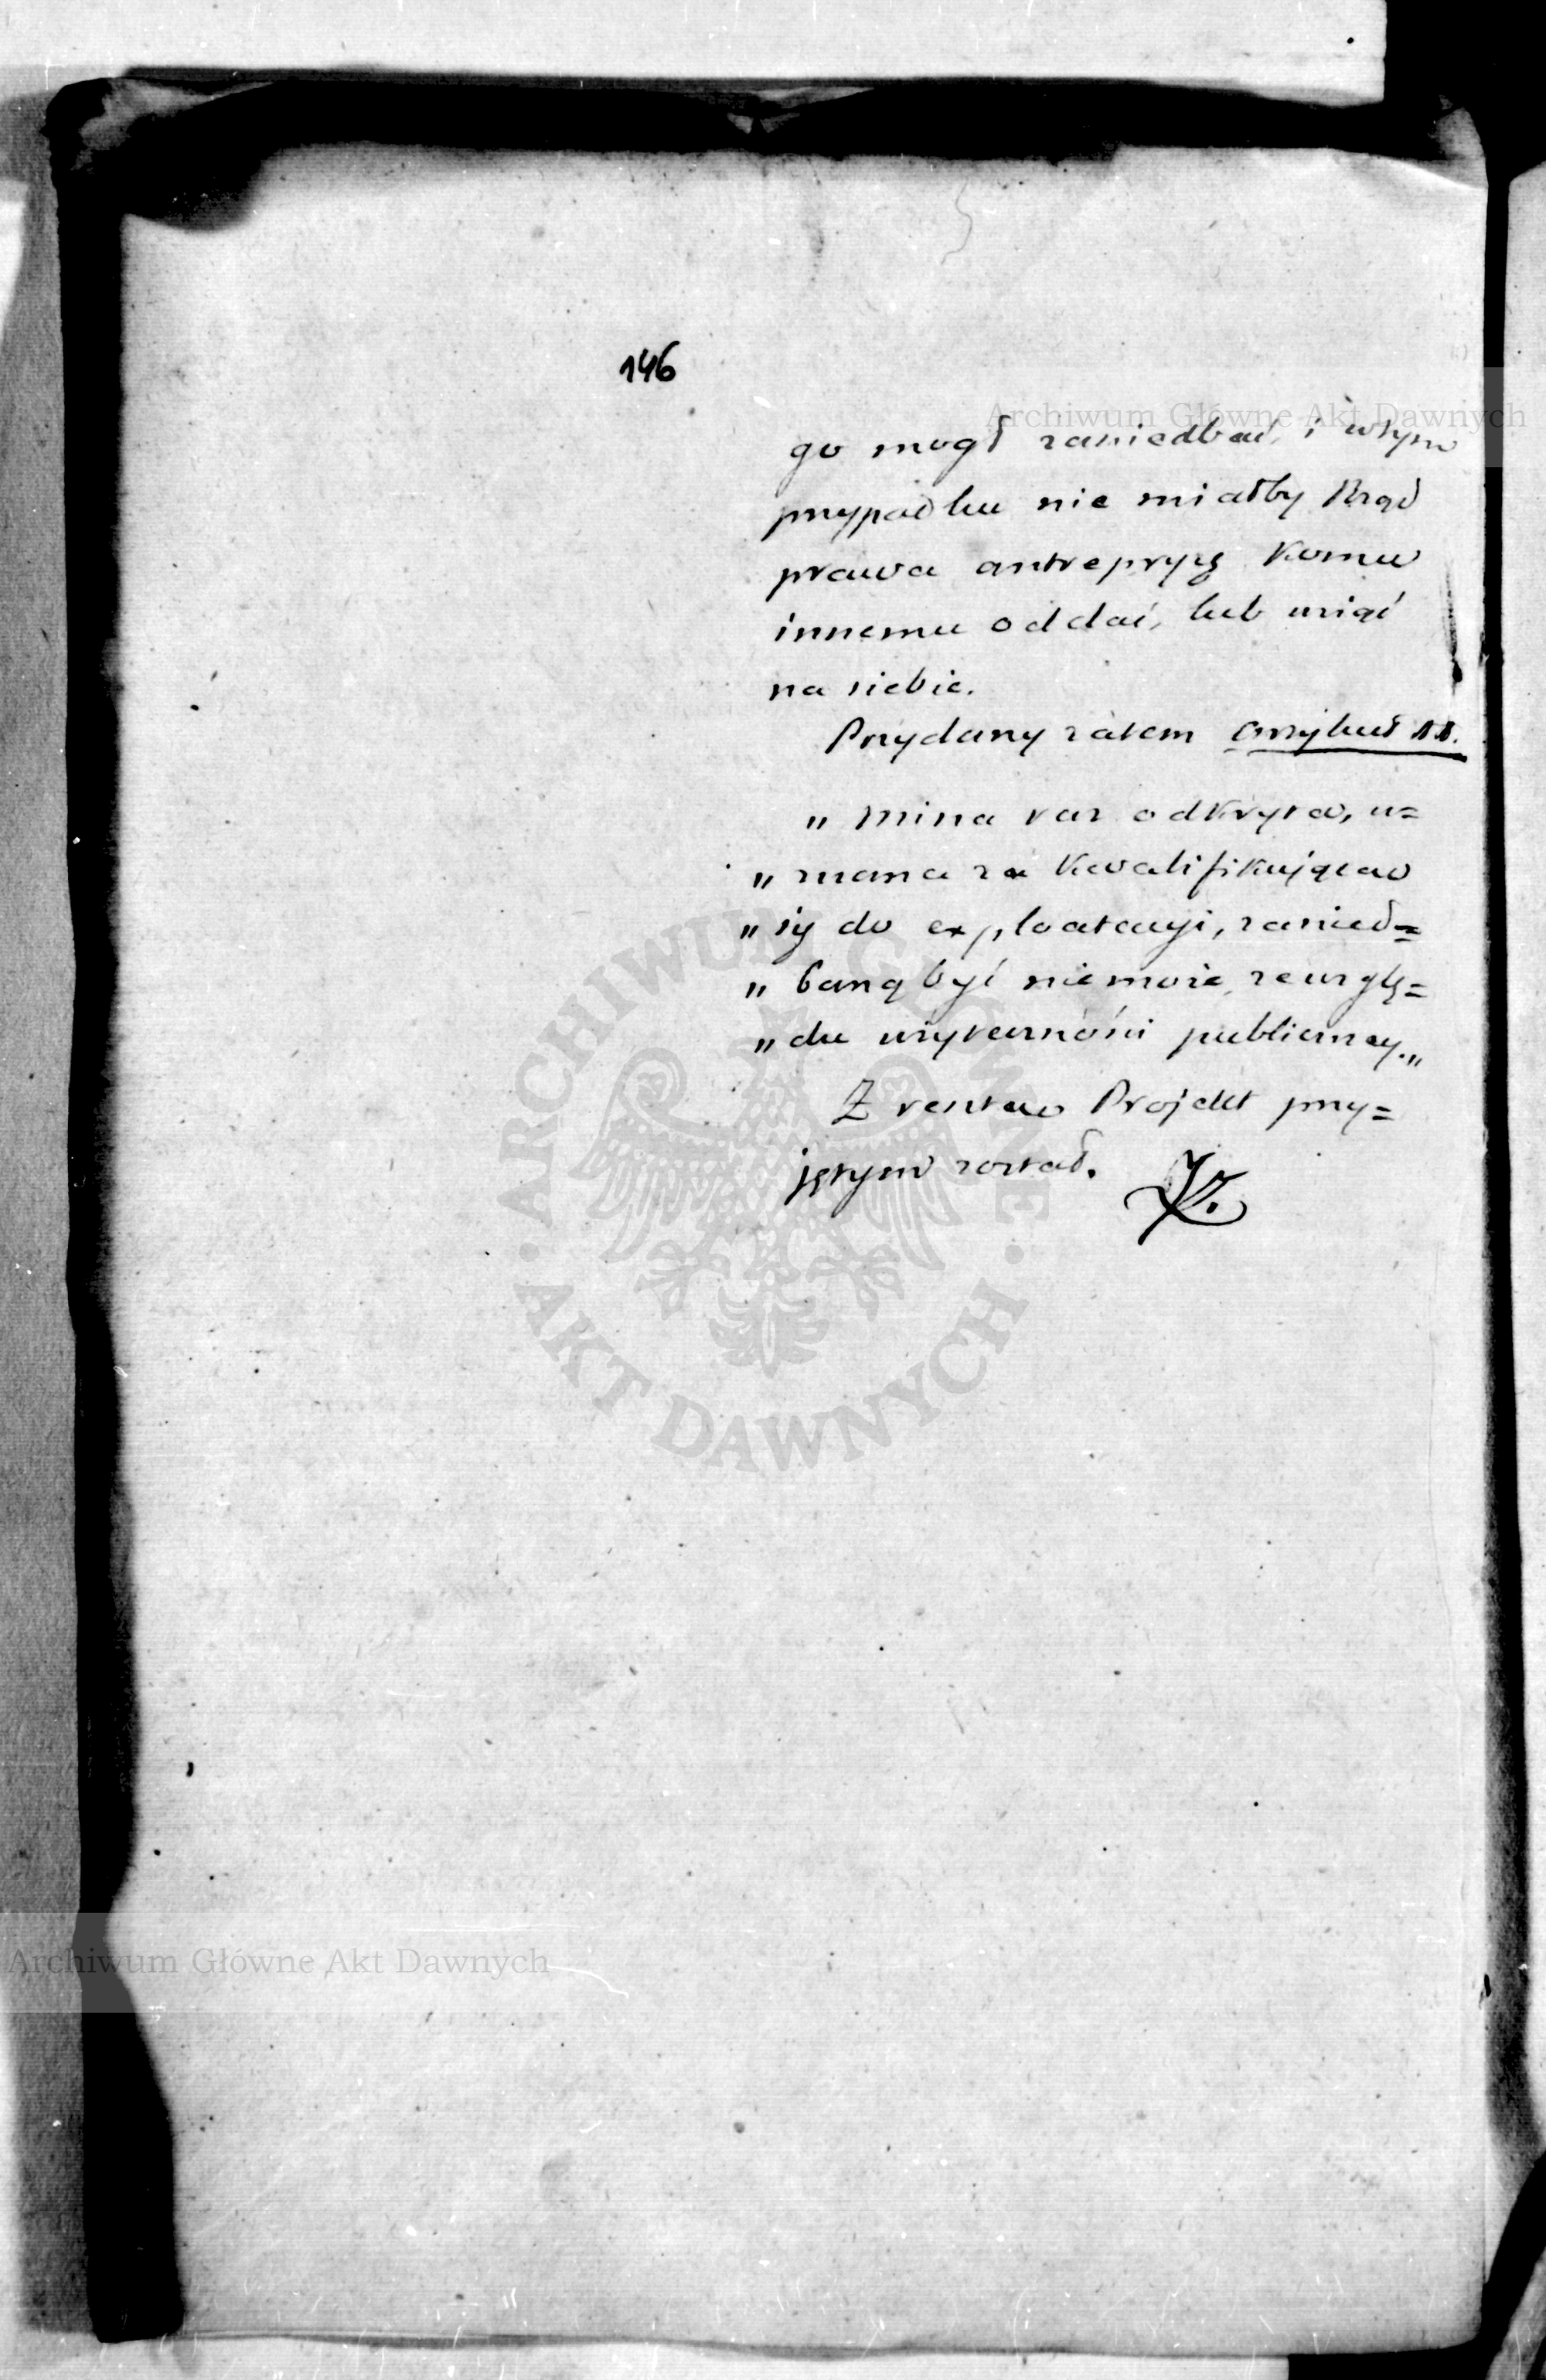 146
Archiwum Główne Akt Dawnych
go mogł zaniedbać, i wtym
przypadku nie miałby Rząd
prawa antrepryzę komu
innemu oddać, lub wziąć
na siebie.
Przydany zatem Artykuł 11.
„ Mina raz odkryta, u=
„ znana za kwalifikującą
„ się do exploatacyi, zanied=
„ baną być niemoże, zewzglę=
„ du użyteczności publiczney.„
Z resztą Projekt przy=
jętym został.
ARCHIWUM GŁÓWNE
AKT DAWNYCH
Archiwum Główne Akt Dawnych